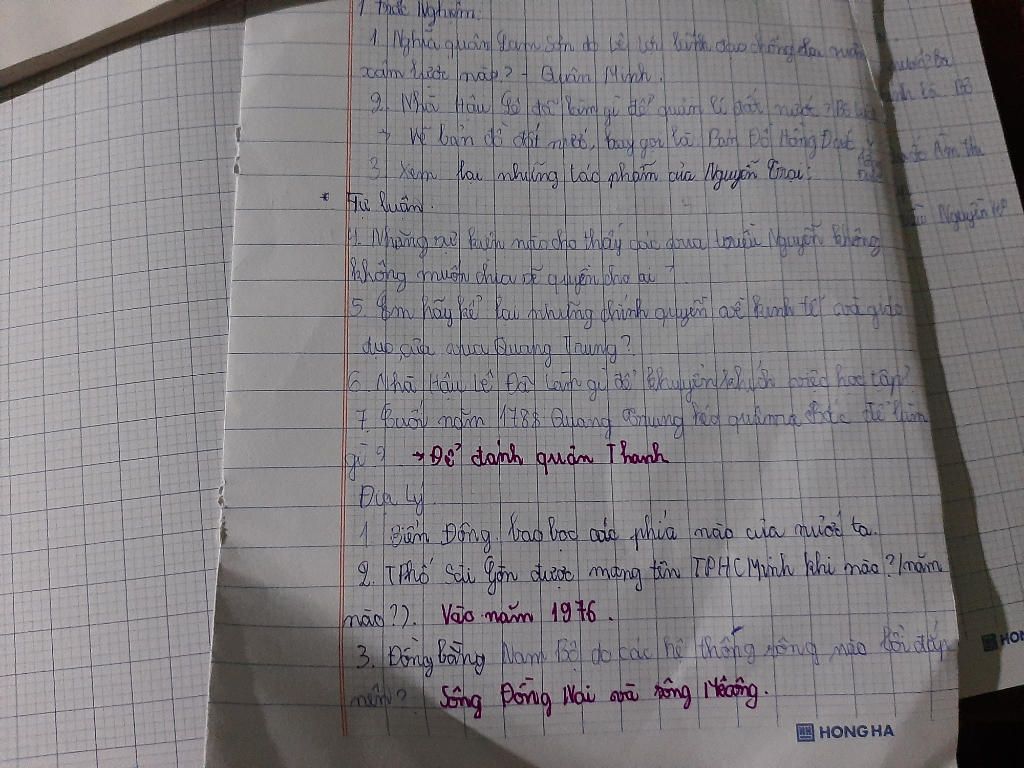 1. Trắc Nghiệm.
1. Nghĩa quân Lam Sơn do Lê Lợi lãnh đạo chống lại quân
xâm lược nào? - Quân Minh.
2. Nhà Hậu Lê đã làm gì để quản lí đất nước? Bộ luật
→ Vẽ bản đồ đất nước, hay gọi là Bản Đồ Hồng Đức
3. Xem lại những tác phẩm của Nguyễn Trãi.
* Tự luân.
4. Những sự kiện nào cho thấy các vua triều Nguyễn không
không muốn chia sẻ quyền cho ai?
5. Em hãy kể lại những chính quyền về kinh tế và giáo
dục của vua Quang Trung?
6. Nhà Hậu Lê Đã làm gì để khuyến khích việc học tập?
7. Cuối năm 1788 Quang Trung kéo quân ra Bắc để làm
gì? → Để đánh quân Thanh
Địa Lý
1 Biển Đông bao bọc các phía nào của nước ta.
2. TPhố Sài Gòn được mang tên TPHCMinh khi nào? (năm
nào?). Vào năm 1976.
3. Đồng bằng Nam Bộ do các hệ thống sông nào bồi đắp
nên? Sông Đồng Nai và sông Mêcông.
HONG HA